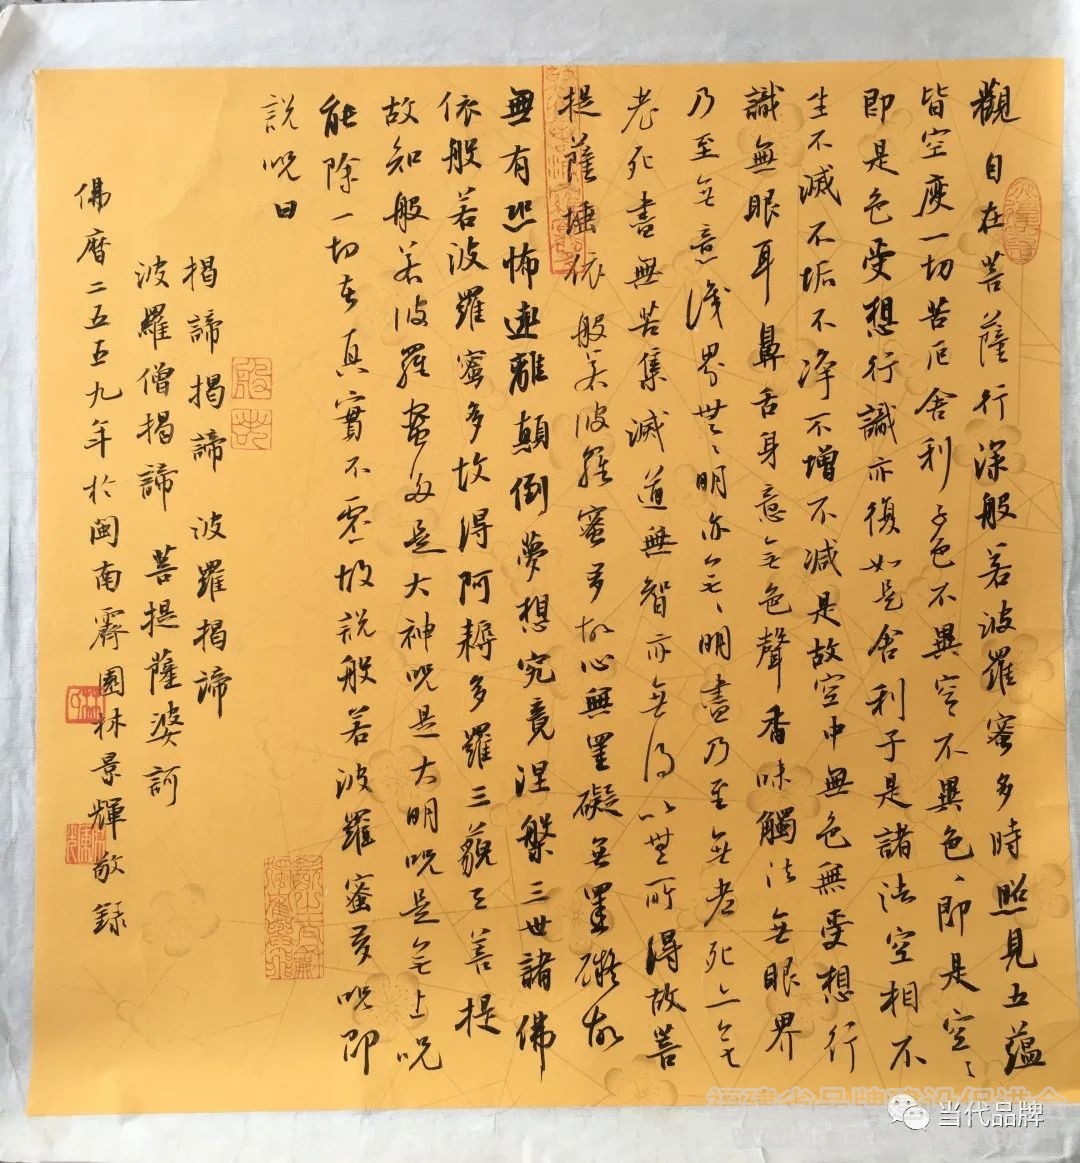 觀自在菩薩行深般若波羅蜜多時照見五蘊
皆空度一切苦厄舍利子色不異空不異色、即是空、
即是色受想行識亦復如是舍利子是諸法空相不
生不滅不垢不净不增不减是故空中無色無受想行
識無眼耳鼻舌身意无色聲香味觸法無眼界
乃至无意識界無、明亦无、明盡乃至無老死亦无
老死盡無苦集滅道無智亦無得以無所得故菩
提薩埵依般若波羅蜜多故心無罣礙無罣礙故
無有恐怖遠離顛倒夢想究竟涅槃三世諸佛
依般若波羅蜜多故得阿耨多羅三藐三菩提
故知般若波羅蜜多是大神呪是大明呪是无上呪
能除一切苦真實不虛故說般若波羅蜜多呪即
說呪曰
揭諦揭諦 波羅揭諦
波羅僧揭諦 菩提薩婆訶
佛曆二五五九年於閩南霽園林景輝敬錄
福建省品牌建设促进会
当代品牌